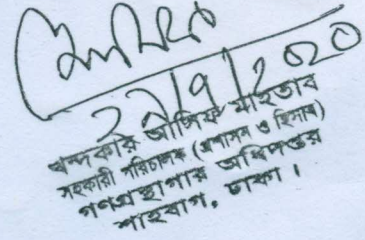 ২৯/৭/২০২০
খন্দকার আসিফ মাহতাব
সহকারী পরিচালক (প্রশাসন ও হিসাব)
গণগ্রন্থাগার অধিদপ্তর
শাহবাগ, ঢাকা।